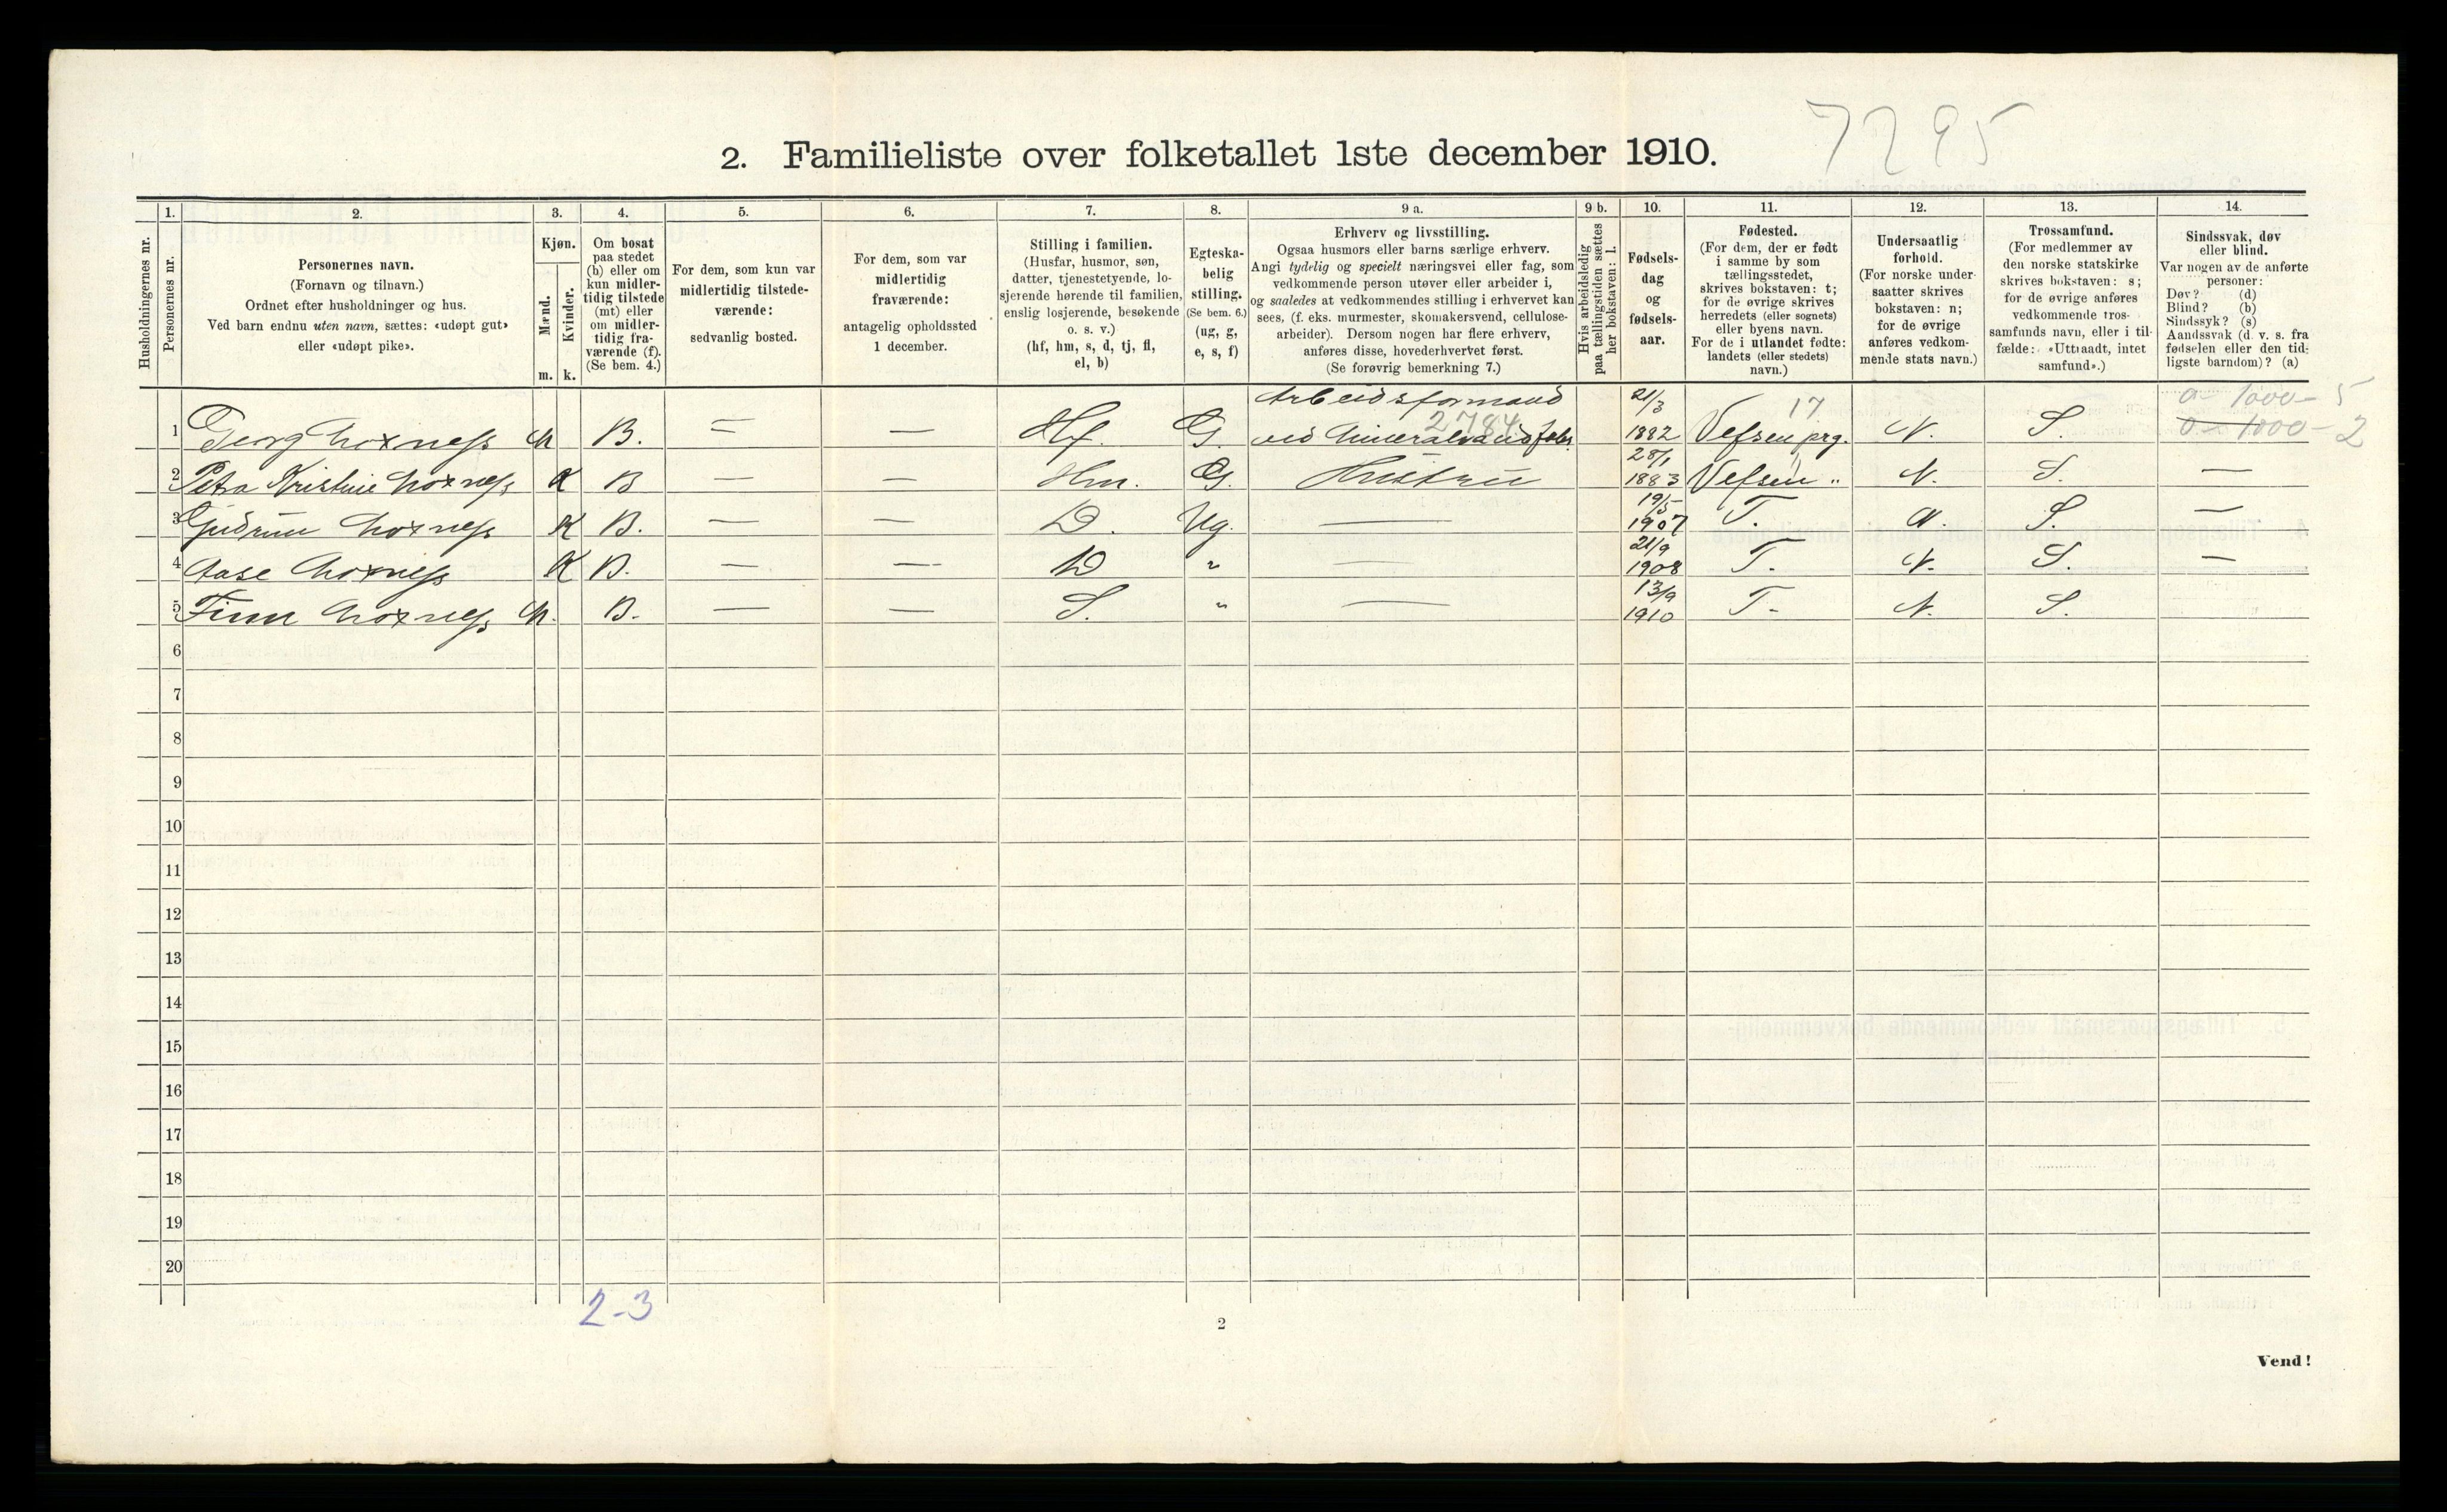 7295
2. Familieliste over folketallet 1ste december 1910.
Husholdningernes nr.
1.
Personernes nr.
2.
Personernes navn.
(Fornavn og tilnavn.)
Ordnet efter husholdninger og hus.
Ved barn endnu uten navn, sættes: «udøpt gut»
eller «udøpt pike».
3.
Kjøn.
Mænd.
Kvinder.
m. k.
4.
Om bosat
paa stedet
(b) eller om
kun midler-
tidig tilstede
(mt) eller
om midler-
tidig fra-
værende (f).
(Se bem. 4.)
5.
For dem, som kun var
midlertidig tilstede-
værende:
sedvanlig bosted.
6.
For dem, som var
midlertidig
fraværende:
antagelig opholdssted
1 december.
7.
Stilling i familien.
(Husfar, husmor, søn,
datter, tjenestetyende, lo-
sjerende hørende til familien,
enslig losjerende, besøkende
o. s. v.)
(hf, hm, s, d, tj, fl,
el, b)
8.
Egteska-
belig
stilling.
(Se bem. 6.)
(ug, g,
e, s, f)
9 a.
Erhverv og livsstilling.
Ogsaa husmors eller barns særlige erhverv.
Angi tydelig og specielt næringsvei eller fag, som
vedkommende person utøver eller arbeider i,
og saaledes at vedkommendes stilling i erhvervet kan
sees, (f. eks. murmester, skomakersvend, cellulose-
arbeider). Dersom nogen har flere erhverv,
anføres disse, hovederhvervet først.
(Se forøvrig bemerkning 7.)
9 b.
Hvis arbeidsledig
paa tællingstiden sættes
her bokstaven: l.
10.
Fødsels-
dag
og
fødsels-
aar.
11.
Fødested.
(For dem, der er født
i samme by som
tællingsstedet,
skrives bokstaven: t;
for de øvrige skrives
herredets (eller sognets)
eller byens navn.
For de i utlandet fødte:
landets (eller stedets)
navn.)
12.
Undersaatlig
forhold.
(For norske under-
saatter skrives
bokstaven: n;
for de øvrige
anføres vedkom-
mende stats navn.)
13.
Trossamfund.
(For medlemmer av
den norske statskirke
skrives bokstaven: s;
for de øvrige anføres
vedkommende tros-
samfunds navn, eller i til-
fælde: «Uttraadt, intet
samfund».)
14.
Sindssvak, døv
eller blind.
Var nogen av de anførte
personer:
Døv? (d)
Blind? (b)
Sindssyk? (s)
Aandssvak (d. v. s. fra
fødselen eller den tid-
ligste barndom)? (a)
Arbeidsformand 21/3 17 0 - 1000 - 5
1 Georg Moxness M B. = — Hf. G. ved Mineralvandfabr. 2784 1882 Vefsen prg. N. S. 0 - 1000 - 2
28/1
2 Petra Kristine Moxness K B — — Hm. G. Hustru 1883 Vefsen " N. S. —
19/5
3 Gudrun Moxness K B. — — D. Ug. — 1907 T. N. S. —
21/9
4 Aase Moxness K B. — — D " — 1908 T. N. S. —
13/9
5 Finn Moxness M. B. — — S. " — 1910 T. N. S.
6
7
8
9
10
11
12
13
14
15
16
17
18
19
20
2-3
2
Vend!